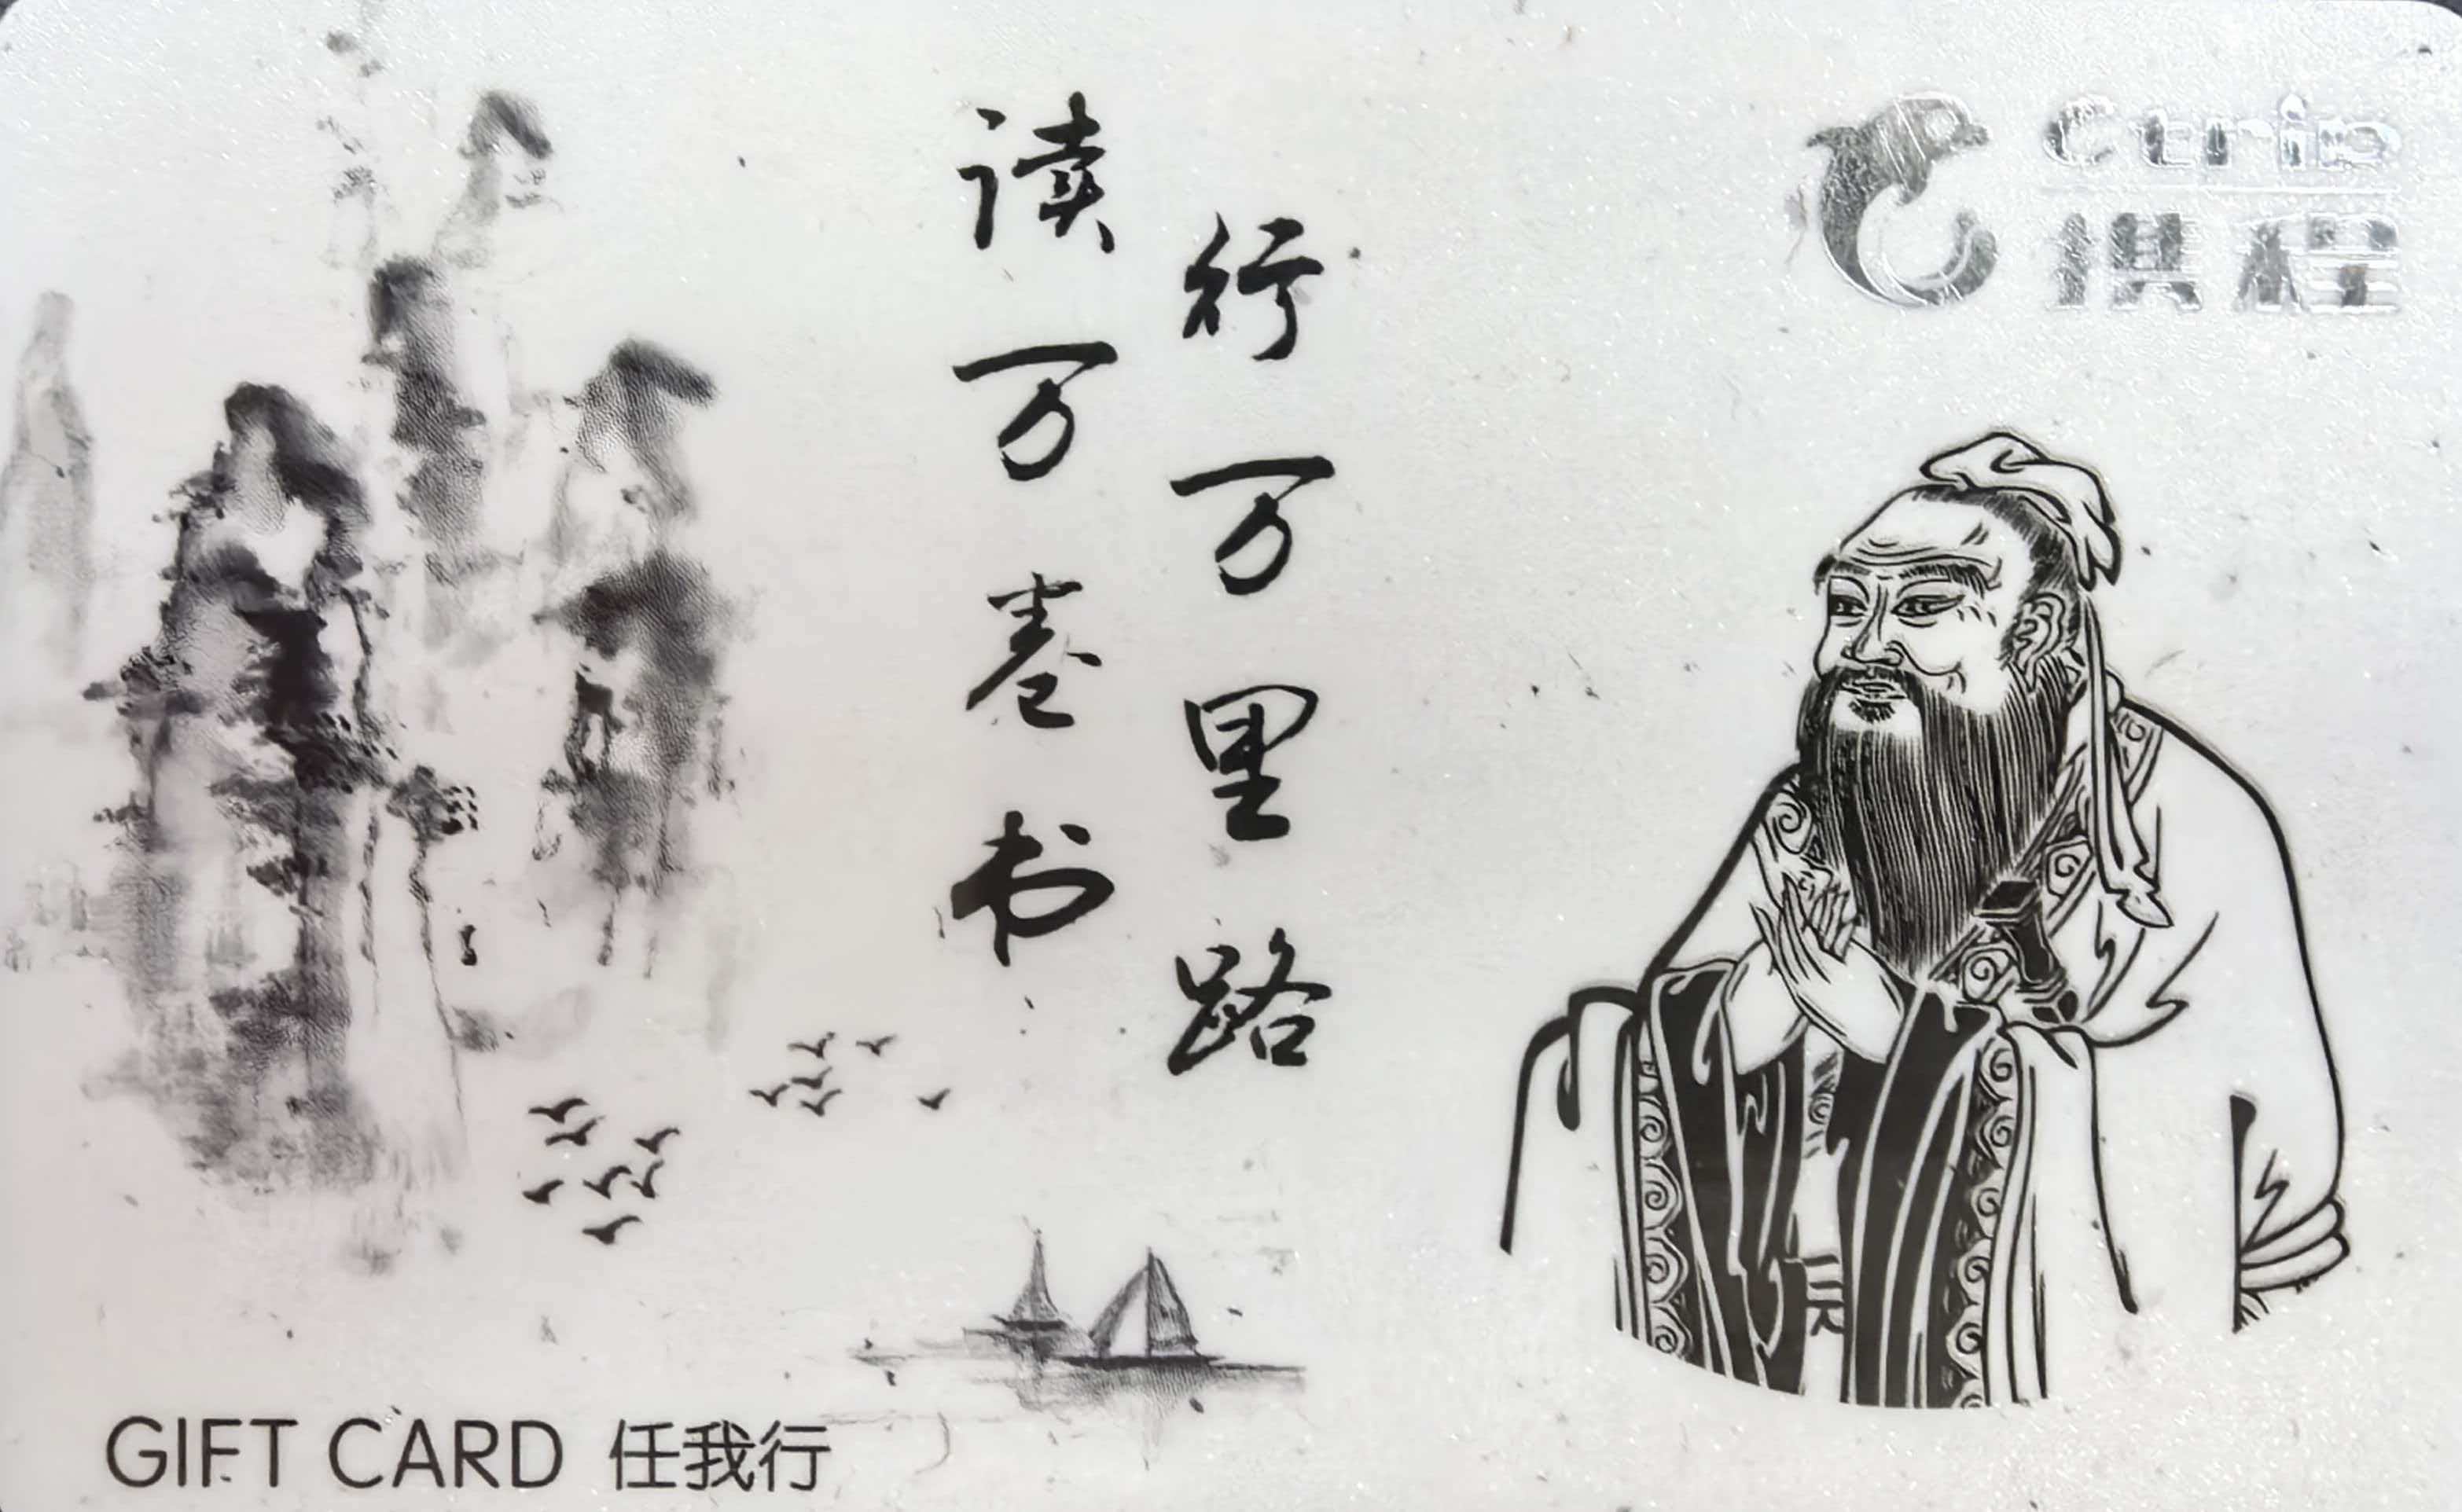 读万卷书
行万里路
Ctrip
携程
GIFT CARD 任我行